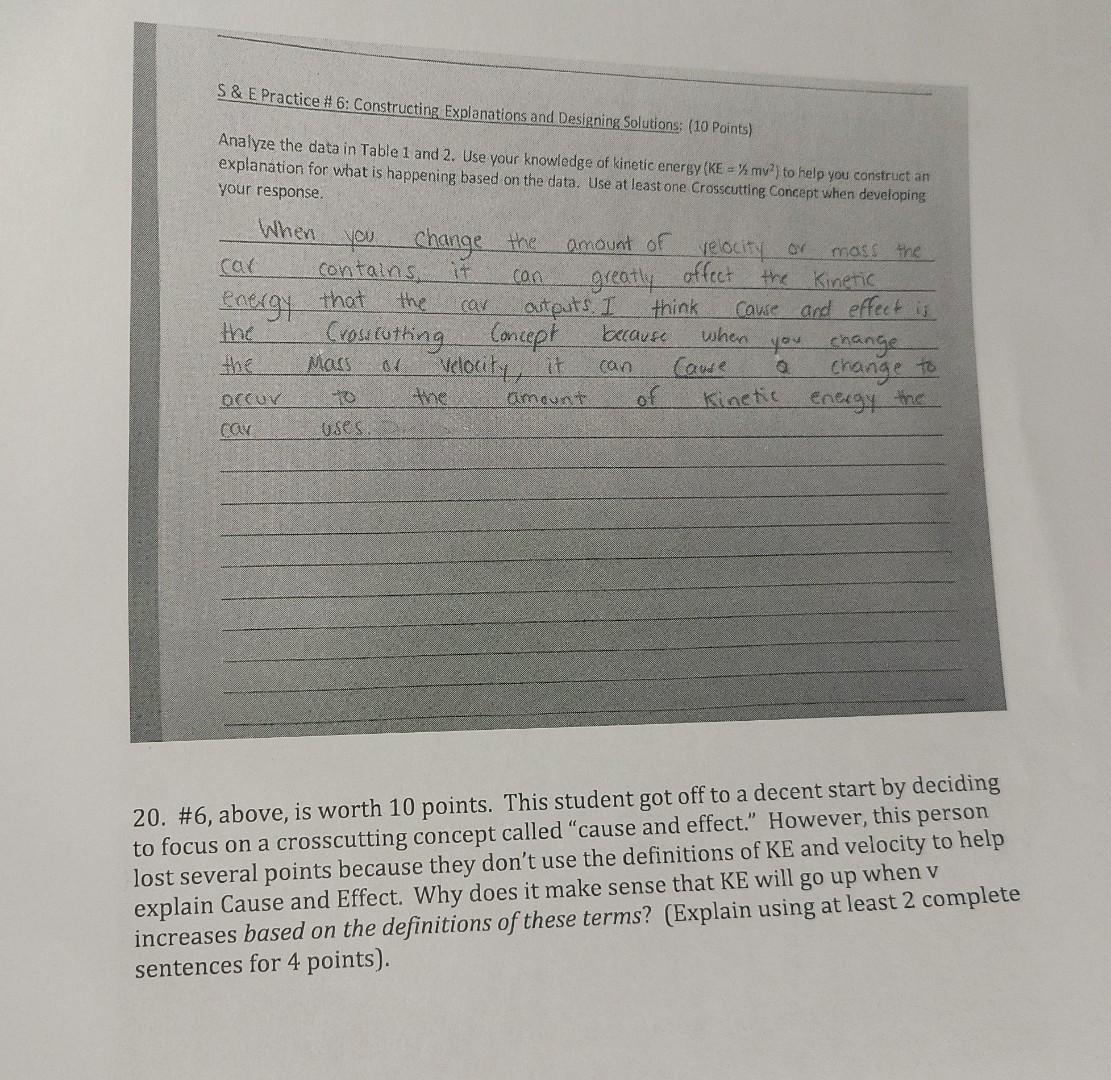 S & E Practice # 6: Constructing Explanations and Designing Solutions: (10 Points)
Analyze the data in Table 1 and 2. Use your knowledge of kinetic energy (KE = ½ mv²) to help you construct an
explanation for what is happening based on the data. Use at least one Crosscutting Concept when developing
your response.
When you change the amount of velocity or mass the
car contains, it can greatly affect the Kinetic
energy that the car outputs. I think Cause and effect is
the Crosscutting Concept because when you change
the Mass or velocity, it can Cause a change to
occur to the amount of Kinetic energy the
car uses.
20. #6, above, is worth 10 points. This student got off to a decent start by deciding
to focus on a crosscutting concept called “cause and effect.” However, this person
lost several points because they don’t use the definitions of KE and velocity to help
explain Cause and Effect. Why does it make sense that KE will go up when v
increases based on the definitions of these terms? (Explain using at least 2 complete
sentences for 4 points).